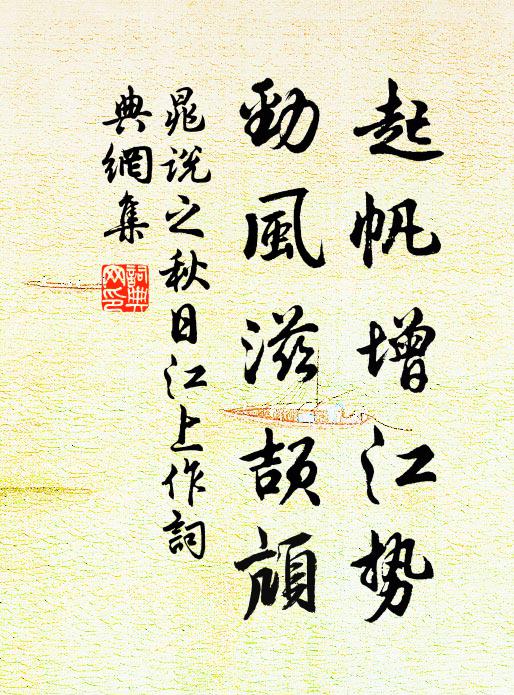 起帆增江势
勁風滋頡頏
晁説之秋日江上作詞
典網集
詞典
网印